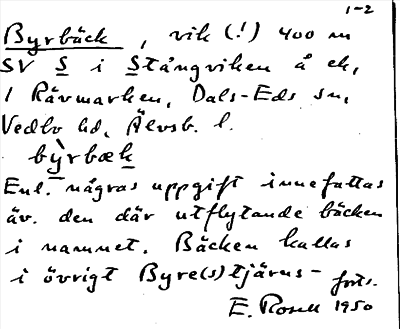 1-2
Byrbäck, vik (!) 400 m
SV S i Stångviken å ek,
1 Rävmarken, Dals-Eds sn,
Vedbo hd, Älvsb. l.
bỳrbæk
Enl. någras uppgift innefattas
äv. den där utflytande bäcken
i namnet. Bäcken kallas
i övrigt Byre(s)tjärns- forts.
E. Rosell 1950